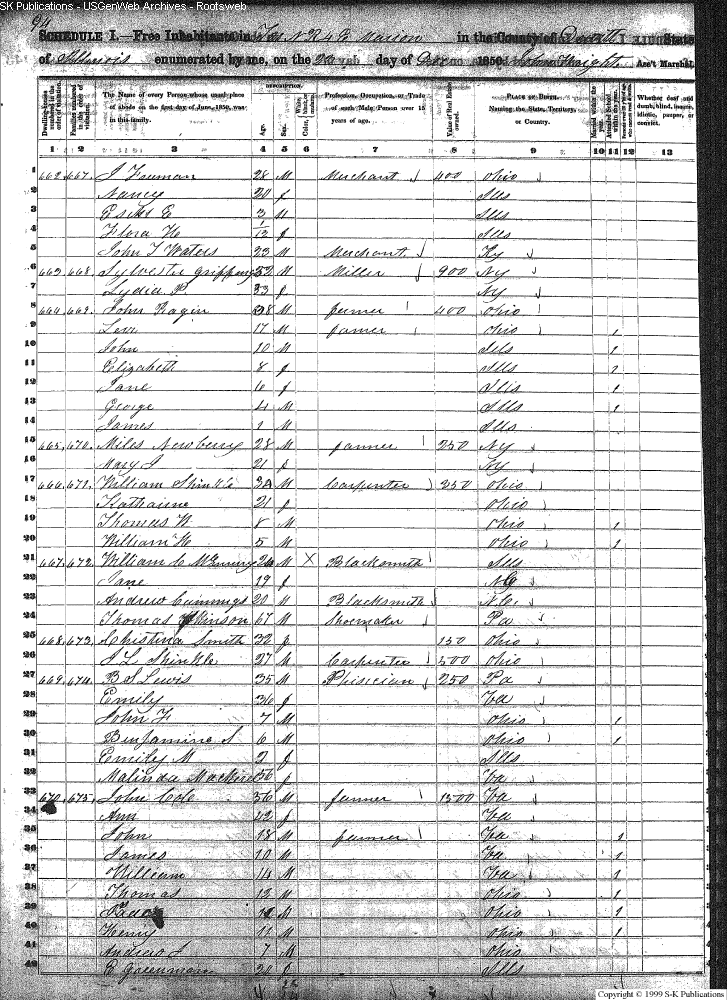 SK Publications - USGenWeb Archives - Rootsweb
94
SCHEDULE I.—Free Inhabitants in in the County of State
of Illinois enumerated by me, on the day of 1850. John Knight. Ass't Marshal.
Dwelling-houses numbered in the order of visitation.
Families numbered in the order of visitation.
The Name of every Person whose usual place of abode on the first day of June, 1850, was in this family.
DESCRIPTION.
Age.
Sex.
Color
Profession, Occupation, or Trade of each Male Person over 15 years of age.
Value of Real Estate owned.
PLACE OF BIRTH. Naming the State, Territory, or Country.
Whether deaf and dumb, blind, insane, idiotic, pauper, or convict.
1 2 3 4 5 6 7 8 9 10 11 12 13
1 662 667 J Freeman 28 M Merchant 400 Ohio
2 Nancy 20 f Ills
3 3 M Ills
4 Flora 1/12 f Ills
5 John T Waters 23 M Merchant Ky
6 663 668 Sylvester 52 M Miller 900 NY
7 Lydia P 33 f NY
8 664 669 John Ragin 38 M farmer 400 Ohio
9 Levi 17 M farmer Ohio 1
10 John 10 M Ills 1
11 Elizabeth 8 f Ills 1
12 Jane 6 f Ills 1
13 George 4 M Ills 1
14 James 1 M Ills
15 665 670 Miles Newberry 28 M farmer 250 NY
16 Mary J 21 f NY
17 666 671 William Shinkle M Carpenter 350 Ohio
18 Katharine 21 f Ohio
19 Thomas W 8 M Ohio 1
20 William H 5 M Ohio 1
21 667 672 William C 26 M X Blacksmith Ills
22 Jane 19 f NC
23 Andrew Cummings 20 M Blacksmith NC
24 Thomas 67 M Shoemaker Pa
25 668 673 Christina Smith 32 f 150 Ohio
26 S L Shinkle 27 M Carpenter 500 Ohio
27 669 674 B S Lewis 35 M Phisician 250 Pa
28 Emily 36 f Va
29 John F 7 M Ohio 1
30 Benjamine S 6 M Ohio 1
31 Emily M 2 f Ills
32 Malinda 56 f Va
33 670 675 John Cole 56 M farmer 1500 Va
34 Ann 42 f Va
35 John 18 M farmer Va 1
36 James M Va 1
37 William 14 M Va 1
38 Thomas 12 M Ohio 1
39 M Ohio 1
40 Henry 11 M Ohio 1
41 Andrew J 7 M Ohio
42 E Greenman 20 f Ills
Copyright © 1999 S-K Publications